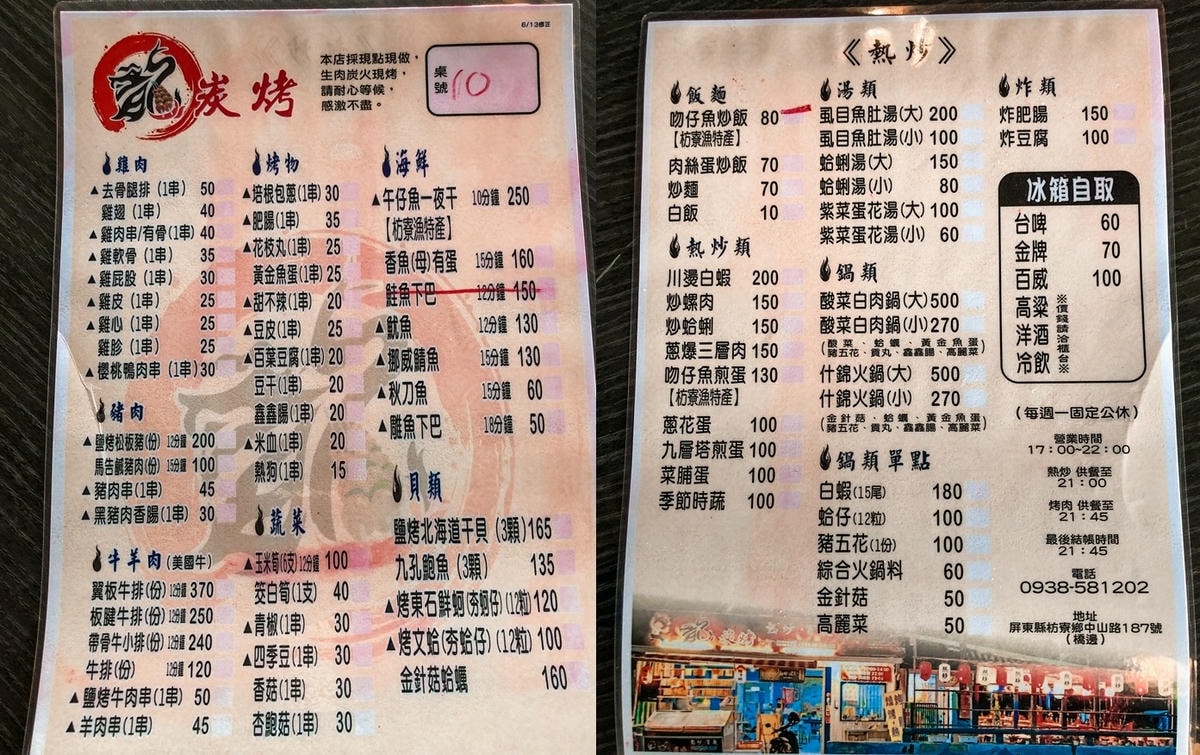 6/13修正
炭烤
本店採現點現做，
生肉炭火現烤，
請耐心等候，
感激不盡。
桌號 10
雞肉
▲去骨腿排(1串) 50
雞翅(1串) 40
▲雞肉串/有骨(1串) 40
▲雞軟骨(1串) 35
▲雞屁股(1串) 30
▲雞皮(1串) 25
▲雞心(1串) 25
雞胗(1串) 25
▲櫻桃鴨肉串(1串) 30
豬肉
▲鹽烤松板豬(份) 12分鐘 200
馬告鹹豬肉(份) 15分鐘 100
▲豬肉串(1串) 45
▲黑豬肉香腸(1串) 30
牛羊肉(美國牛)
翼板牛排(份) 12分鐘 370
板腱牛排(份) 12分鐘 250
帶骨牛小排(份) 12分鐘 240
牛排(份) 12分鐘 120
▲鹽烤牛肉串(1串) 50
▲羊肉串(1串) 45
烤物
▲培根包蔥(1串) 30
▲肥腸(1串) 35
▲花枝丸(1串) 25
黃金魚蛋(1串) 25
▲甜不辣(1串) 20
▲豆皮(1串) 25
▲百葉豆腐(1串) 20
豆干(1串) 20
鑫鑫腸(1串) 20
▲米血(1串) 20
熱狗(1串) 15
蔬菜
▲玉米筍(6支) 12分鐘 100
筊白筍(1支) 40
▲青椒(1串) 30
▲四季豆(1串) 30
香菇(1串) 30
杏鮑菇(1串) 30
海鮮
▲午仔魚一夜干 10分鐘 250
【枋寮漁特產】
香魚(母)有蛋 15分鐘 160
鮭魚下巴 12分鐘 150
▲魷魚 12分鐘 130
▲挪威鯖魚 15分鐘 130
▲秋刀魚 15分鐘 60
▲雕魚下巴 18分鐘 50
貝類
鹽烤北海道干貝(3顆) 165
九孔鮑魚(3顆) 135
▲烤東石鮮蚵(夯蚵仔)(12粒) 120
▲烤文蛤(夯蛤仔)(12粒) 100
金針菇蛤蠣 160
《熱炒》
飯麵
吻仔魚炒飯 80
【枋寮漁特產】
肉絲蛋炒飯 70
炒麵 70
白飯 10
熱炒類
川燙白蝦 200
炒螺肉 150
炒蛤蜊 150
蔥爆三層肉 150
吻仔魚煎蛋 130
【枋寮漁特產】
蔥花蛋 100
九層塔煎蛋 100
菜脯蛋 100
季節時蔬 100
湯類
虱目魚肚湯(大) 200
虱目魚肚湯(小) 100
蛤蜊湯(大) 150
蛤蜊湯(小) 80
紫菜蛋花湯(大) 100
紫菜蛋花湯(小) 60
鍋類
酸菜白肉鍋(大) 500
酸菜白肉鍋(小) 270
(酸菜、蛤蠣、黃金魚蛋
豬五花、貢丸、鑫鑫腸、高麗菜)
什錦火鍋(大) 500
什錦火鍋(小) 270
(金針菇、蛤蠣、黃金魚蛋
豬五花、貢丸、鑫鑫腸、高麗菜)
鍋類單點
白蝦(15尾) 180
蛤仔(12粒) 100
豬五花(1份) 100
綜合火鍋料 60
金針菇 50
高麗菜 50
炸類
炸肥腸 150
炸豆腐 100
冰箱自取
台啤 60
金牌 70
百威 100
高粱
洋酒
冷飲
※價錢請洽櫃台※
(每週一固定公休)
營業時間
17:00~22:00
熱炒 供餐至
21:00
烤肉 供餐至
21:45
最後結帳時間
21:45
電話
0938-581202
地址
屏東縣枋寮鄉中山路187號
(橋邊)